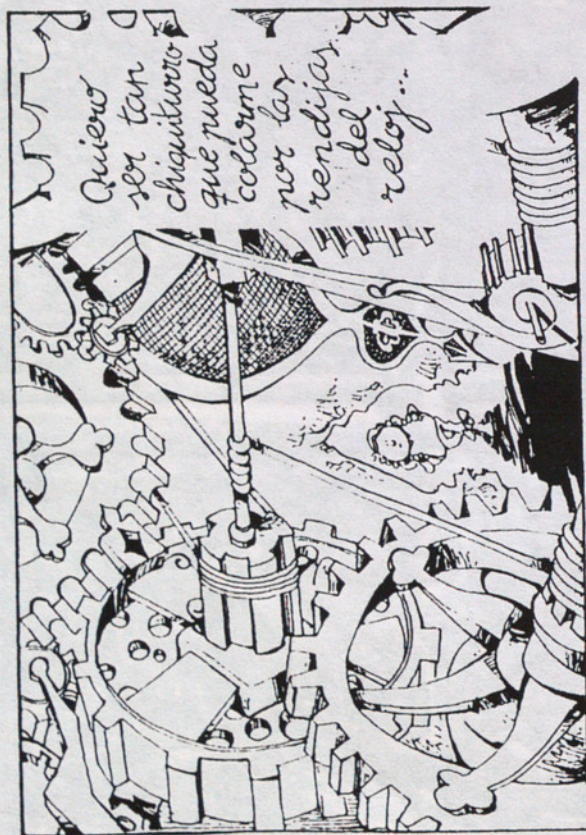 Quiero
ser tan
chiquiturro
que pueda
colarme
por las
rendijas
del
reloj...